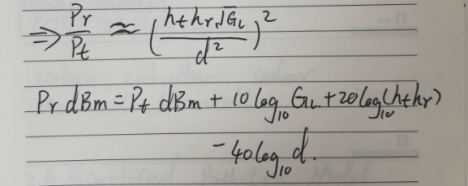 ⇒ Pr/Pt ≈ (hthr√Gl/d²)²
Pr dBm = Pt dBm + 10 log₁₀ Gl + 20 log₁₀(hthr)
- 40 log₁₀ d.